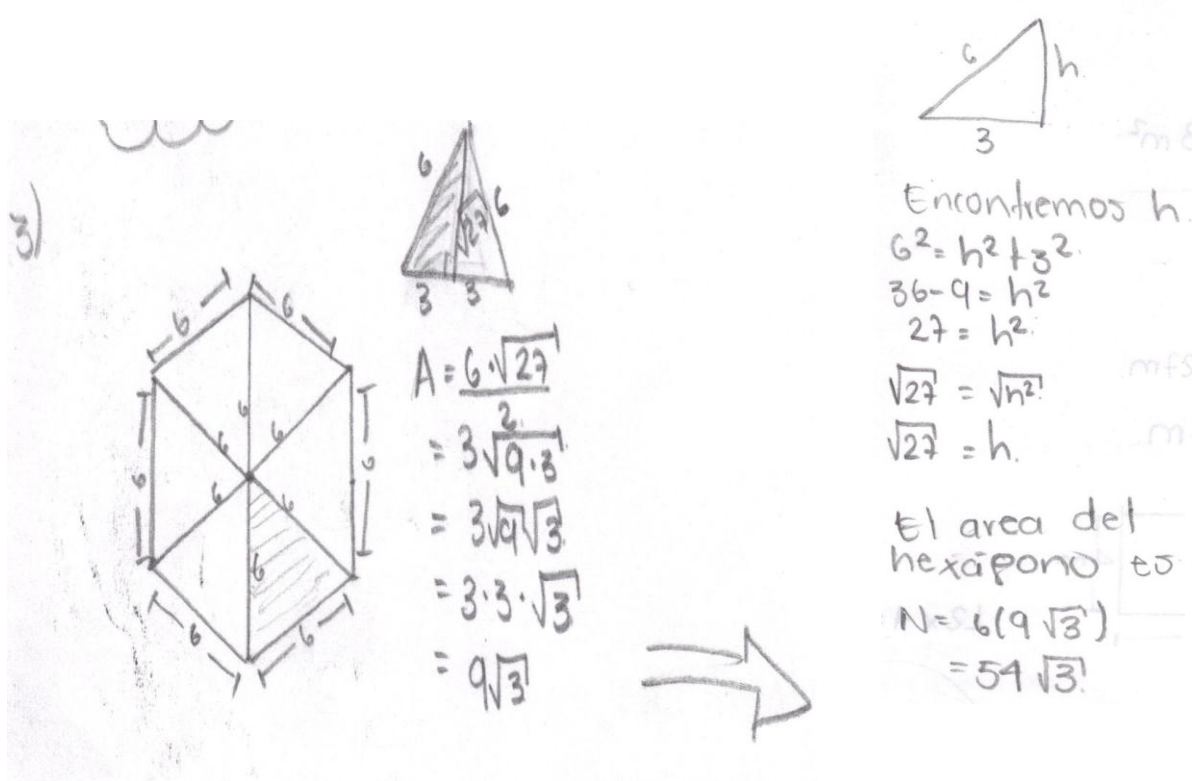 3)
6
6
6
6
6
6
6
6
6
6
6
6
6
6
√27
3
3
A = 6·√27
2
= 3√9·3
= 3√9√3
= 3·3·√3
= 9√3
6
h
3
Encontremos h.
6² = h² + 3².
36-9 = h²
27 = h².
√27 = √h².
√27 = h.
El area del
hexágono es
N = 6(9√3)
= 54√3